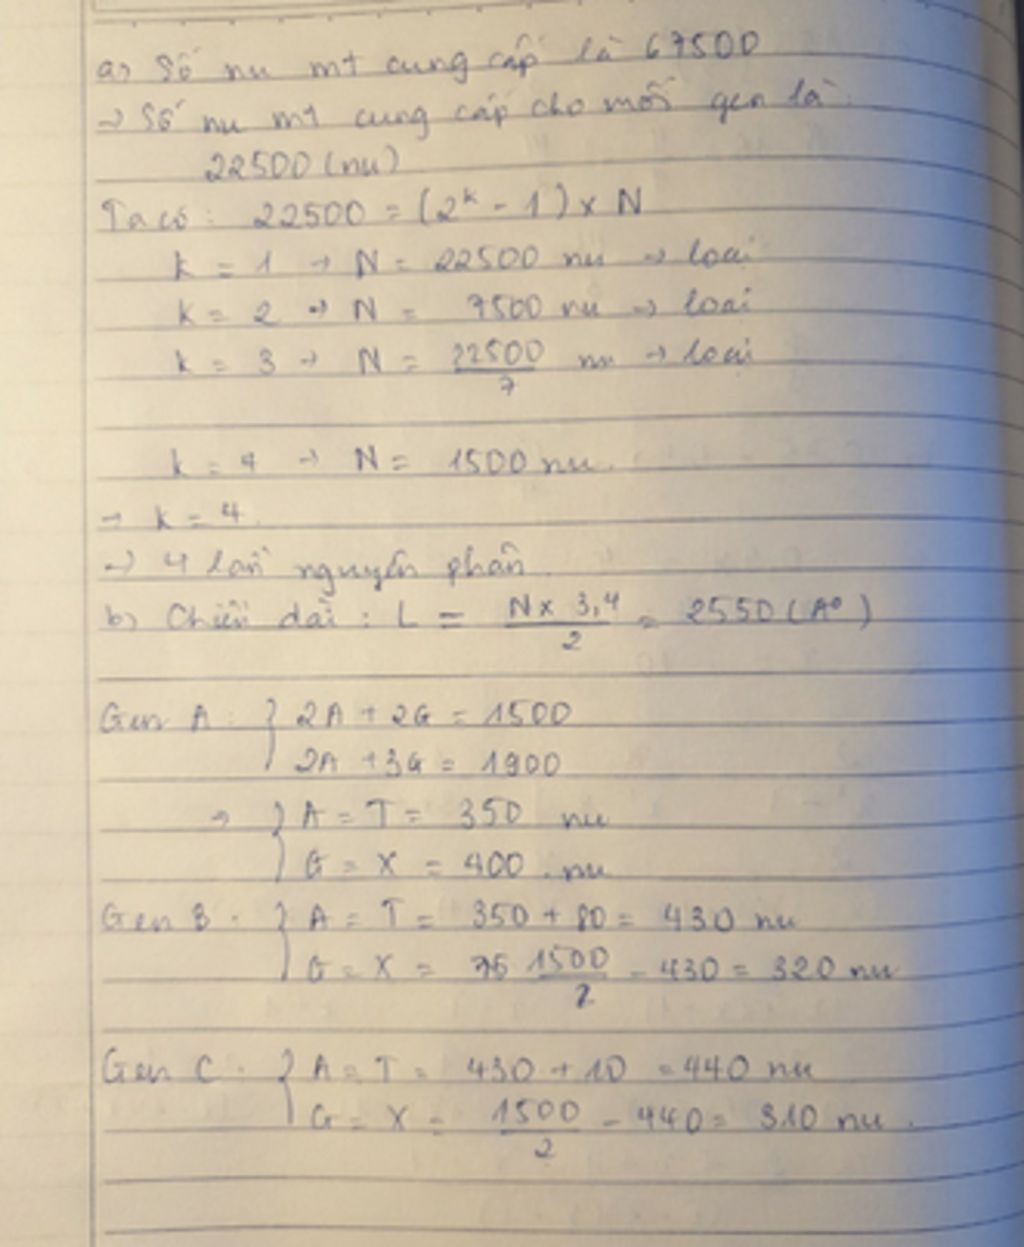 a) Số nu mt cung cấp là 67500
→ Số nu mt cung cấp cho mỗi gen là
22500 (nu)
Ta có: 22500 = (2^k - 1) x N
k = 1 → N = 22500 nu → loại
k = 2 → N = 7500 nu → loại
k = 3 → N = 22500/7 nu → loại
k = 4 → N = 1500 nu.
→ k = 4.
→ 4 lần nguyên phân
b) Chiều dài: L = N x 3,4 / 2 = 2550 (A°)
Gen A: { 2A + 2G = 1500
2A + 3G = 1900
→ { A = T = 350 nu
G = X = 400 nu
Gen B: { A = T = 350 + 80 = 430 nu
G = X = 1500/2 - 430 = 320 nu
Gen C: { A = T = 430 + 10 = 440 nu
G = X = 1500/2 - 440 = 310 nu.